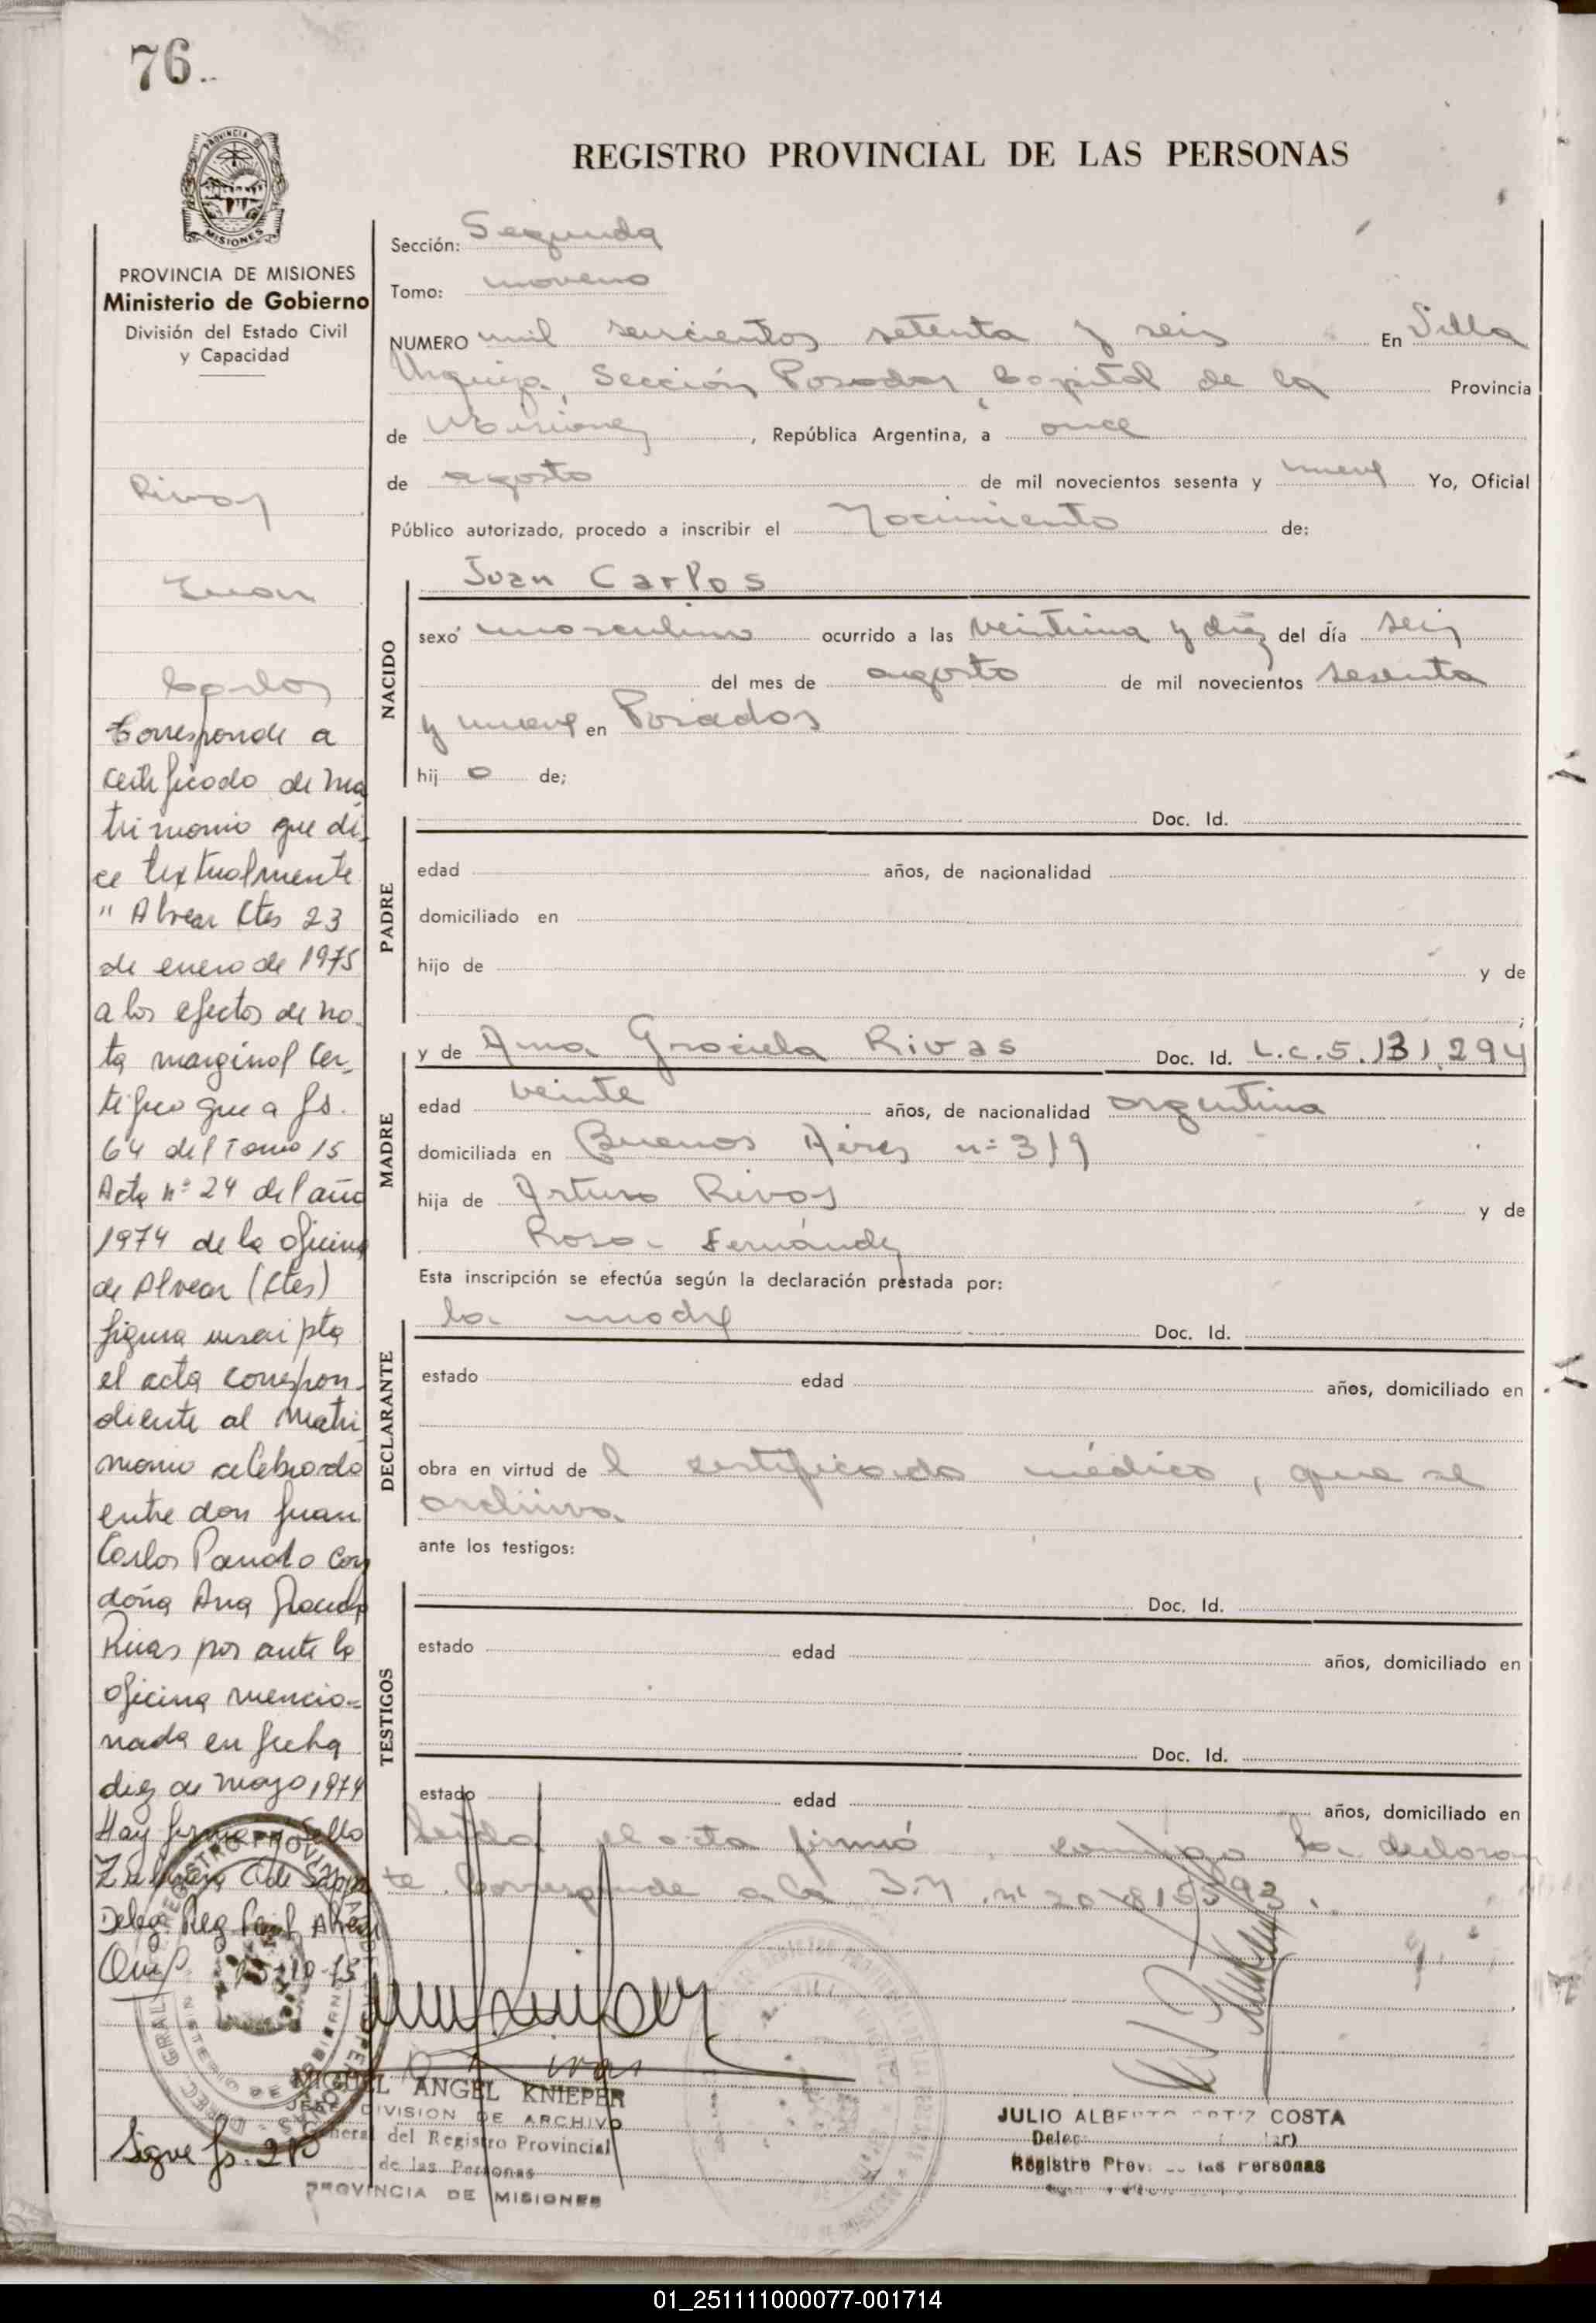 76
REGISTRO PROVINCIAL DE LAS PERSONAS
PROVINCIA DE MISIONES
Ministerio de Gobierno
División del Estado Civil
y Capacidad
Rivas
Juan
Carlos
Corresponde a
certificado de ma
trimonio que di
ce textualmente
" Alvear Ctes 23
de enero de 1975
a los efectos de no-
ta marginal Cer-
tifico que a fs.
64 del Tomo 15
Acta nº 24 del año
1974 de la oficina
de Alvear (Ctes)
figura inscripta
el acta correspon-
diente al Matri
monio celebrado
entre don Juan
Carlos con
doña Ana Graciela
Rivas por ante la
oficina mencio-
nada en fecha
diez de mayo 1974
Hay firma y Sello
Sigue fs. 210
Sección: Segunda
Tomo: noveno
NUMERO mil seiscientos setenta y seis En Villa
Urquiza, Sección Posadas, Capital de la Provincia
de Misiones, República Argentina, a once
de agosto de mil novecientos sesenta y nueve Yo, Oficial
Público autorizado, procedo a inscribir el Nacimiento de:
NACIDO
Juan Carlos
sexo masculino ocurrido a las veintiuna y diez del día seis
del mes de agosto de mil novecientos sesenta
y nueve en Posadas
hij o de;
PADRE
Doc. Id.
edad años, de nacionalidad
domiciliado en
hijo de y de
;
MADRE
y de Ana Graciela Rivas Doc. Id. L.C.5.131.294
edad veinte años, de nacionalidad argentina
domiciliada en Buenos Aires nº 319
hija de Arturo Rivas y de
Rosa Fernández
Esta inscripción se efectúa según la declaración prestada por:
DECLARANTE
la madre Doc. Id.
estado edad años, domiciliado en
obra en virtud de l certificado médico, que se
archiva.
ante los testigos:
TESTIGOS
Doc. Id.
estado edad años, domiciliado en
Doc. Id.
estado edad años, domiciliado en
Leída el acta firmó conmigo la declaran
te. Corresponde a la nº 20.815.593.
Rivas
MIGUEL ANGEL KNIEPER
JEFE DIVISION DE ARCHIVO
General del Registro Provincial
de las Personas
PROVINCIA DE MISIONES
JULIO ALBERTO ORTIZ COSTA
Registro Prov. de las Personas
01_251111000077-001714